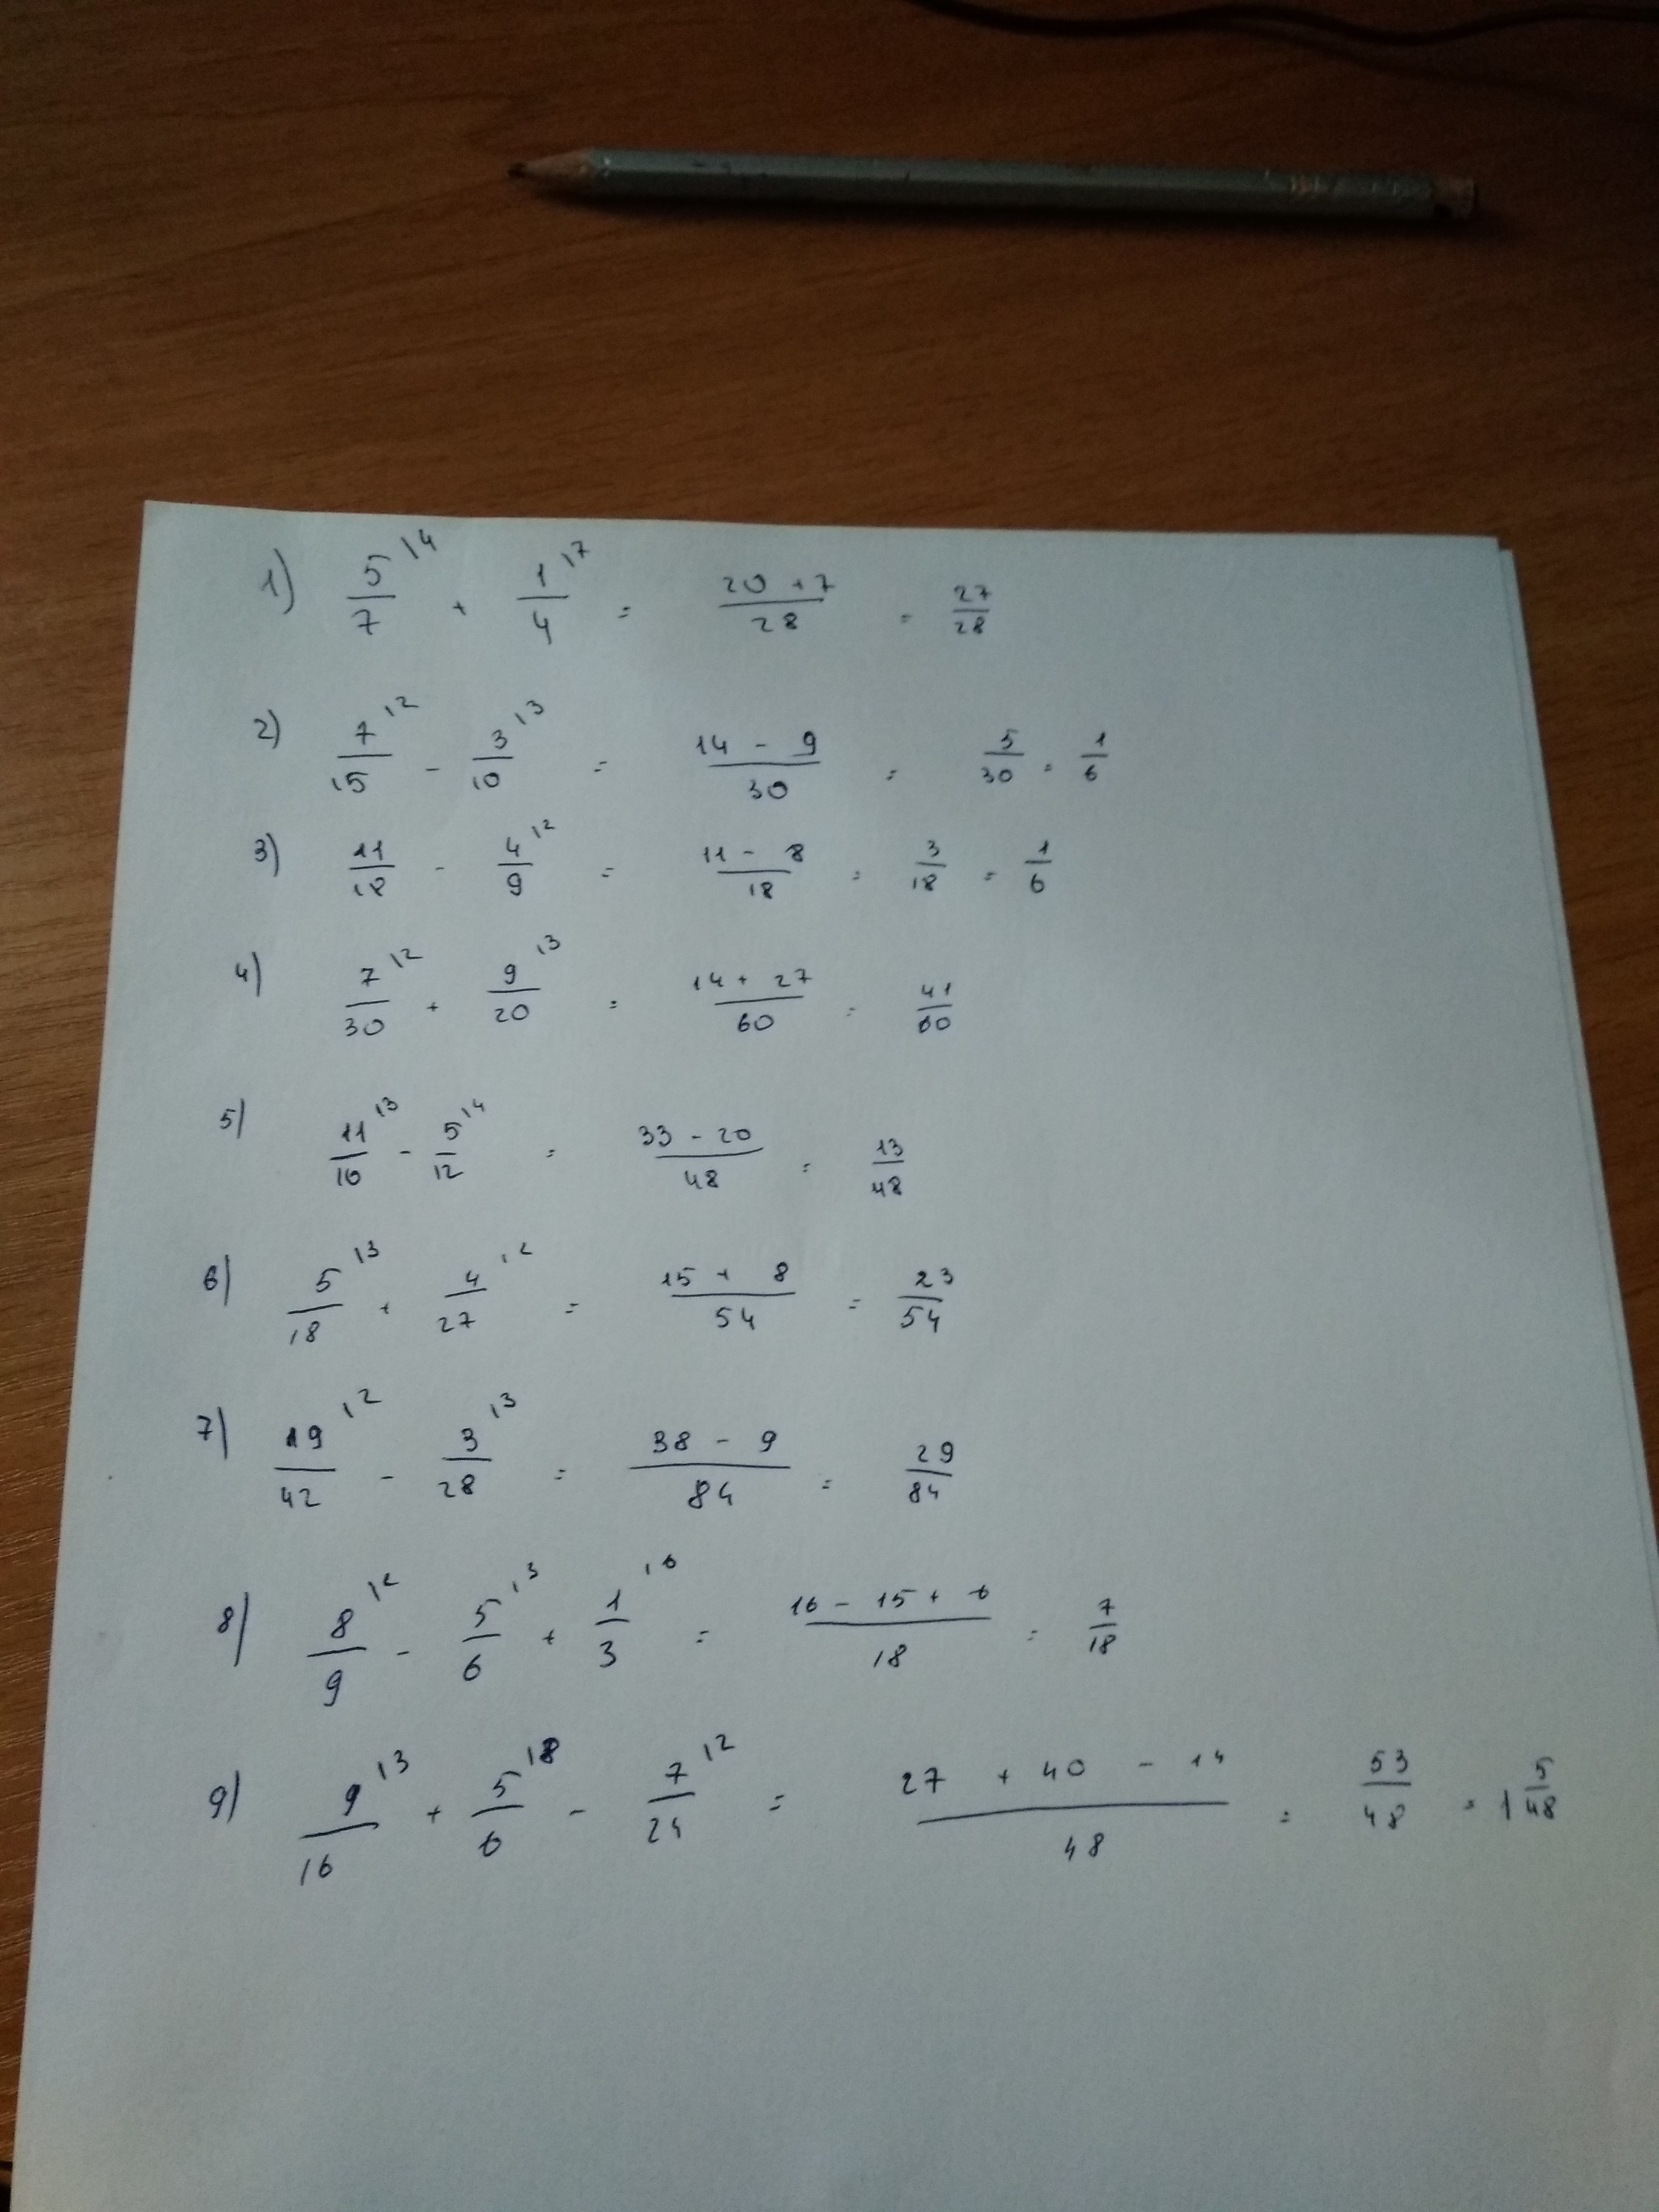 1) 5/7 \4 + 1/4 \7 = (20 + 7)/28 = 27/28
2) 7/15 \2 - 3/10 \3 = (14 - 9)/30 = 5/30 = 1/6
3) 11/18 - 4/9 \2 = (11 - 8)/18 = 3/18 = 1/6
4) 7/30 \2 + 9/20 \3 = (14 + 27)/60 = 41/60
5) 11/16 \3 - 5/12 \4 = (33 - 20)/48 = 13/48
6) 5/18 \3 + 4/27 \2 = (15 + 8)/54 = 23/54
7) 19/42 \2 - 3/28 \3 = (38 - 9)/84 = 29/84
8) 8/9 \2 - 5/6 \3 + 1/3 \6 = (16 - 15 + 6)/18 = 7/18
9) 9/16 \3 + 5/6 \8 - 7/24 \2 = (27 + 40 - 14)/48 = 53/48 = 1 5/48